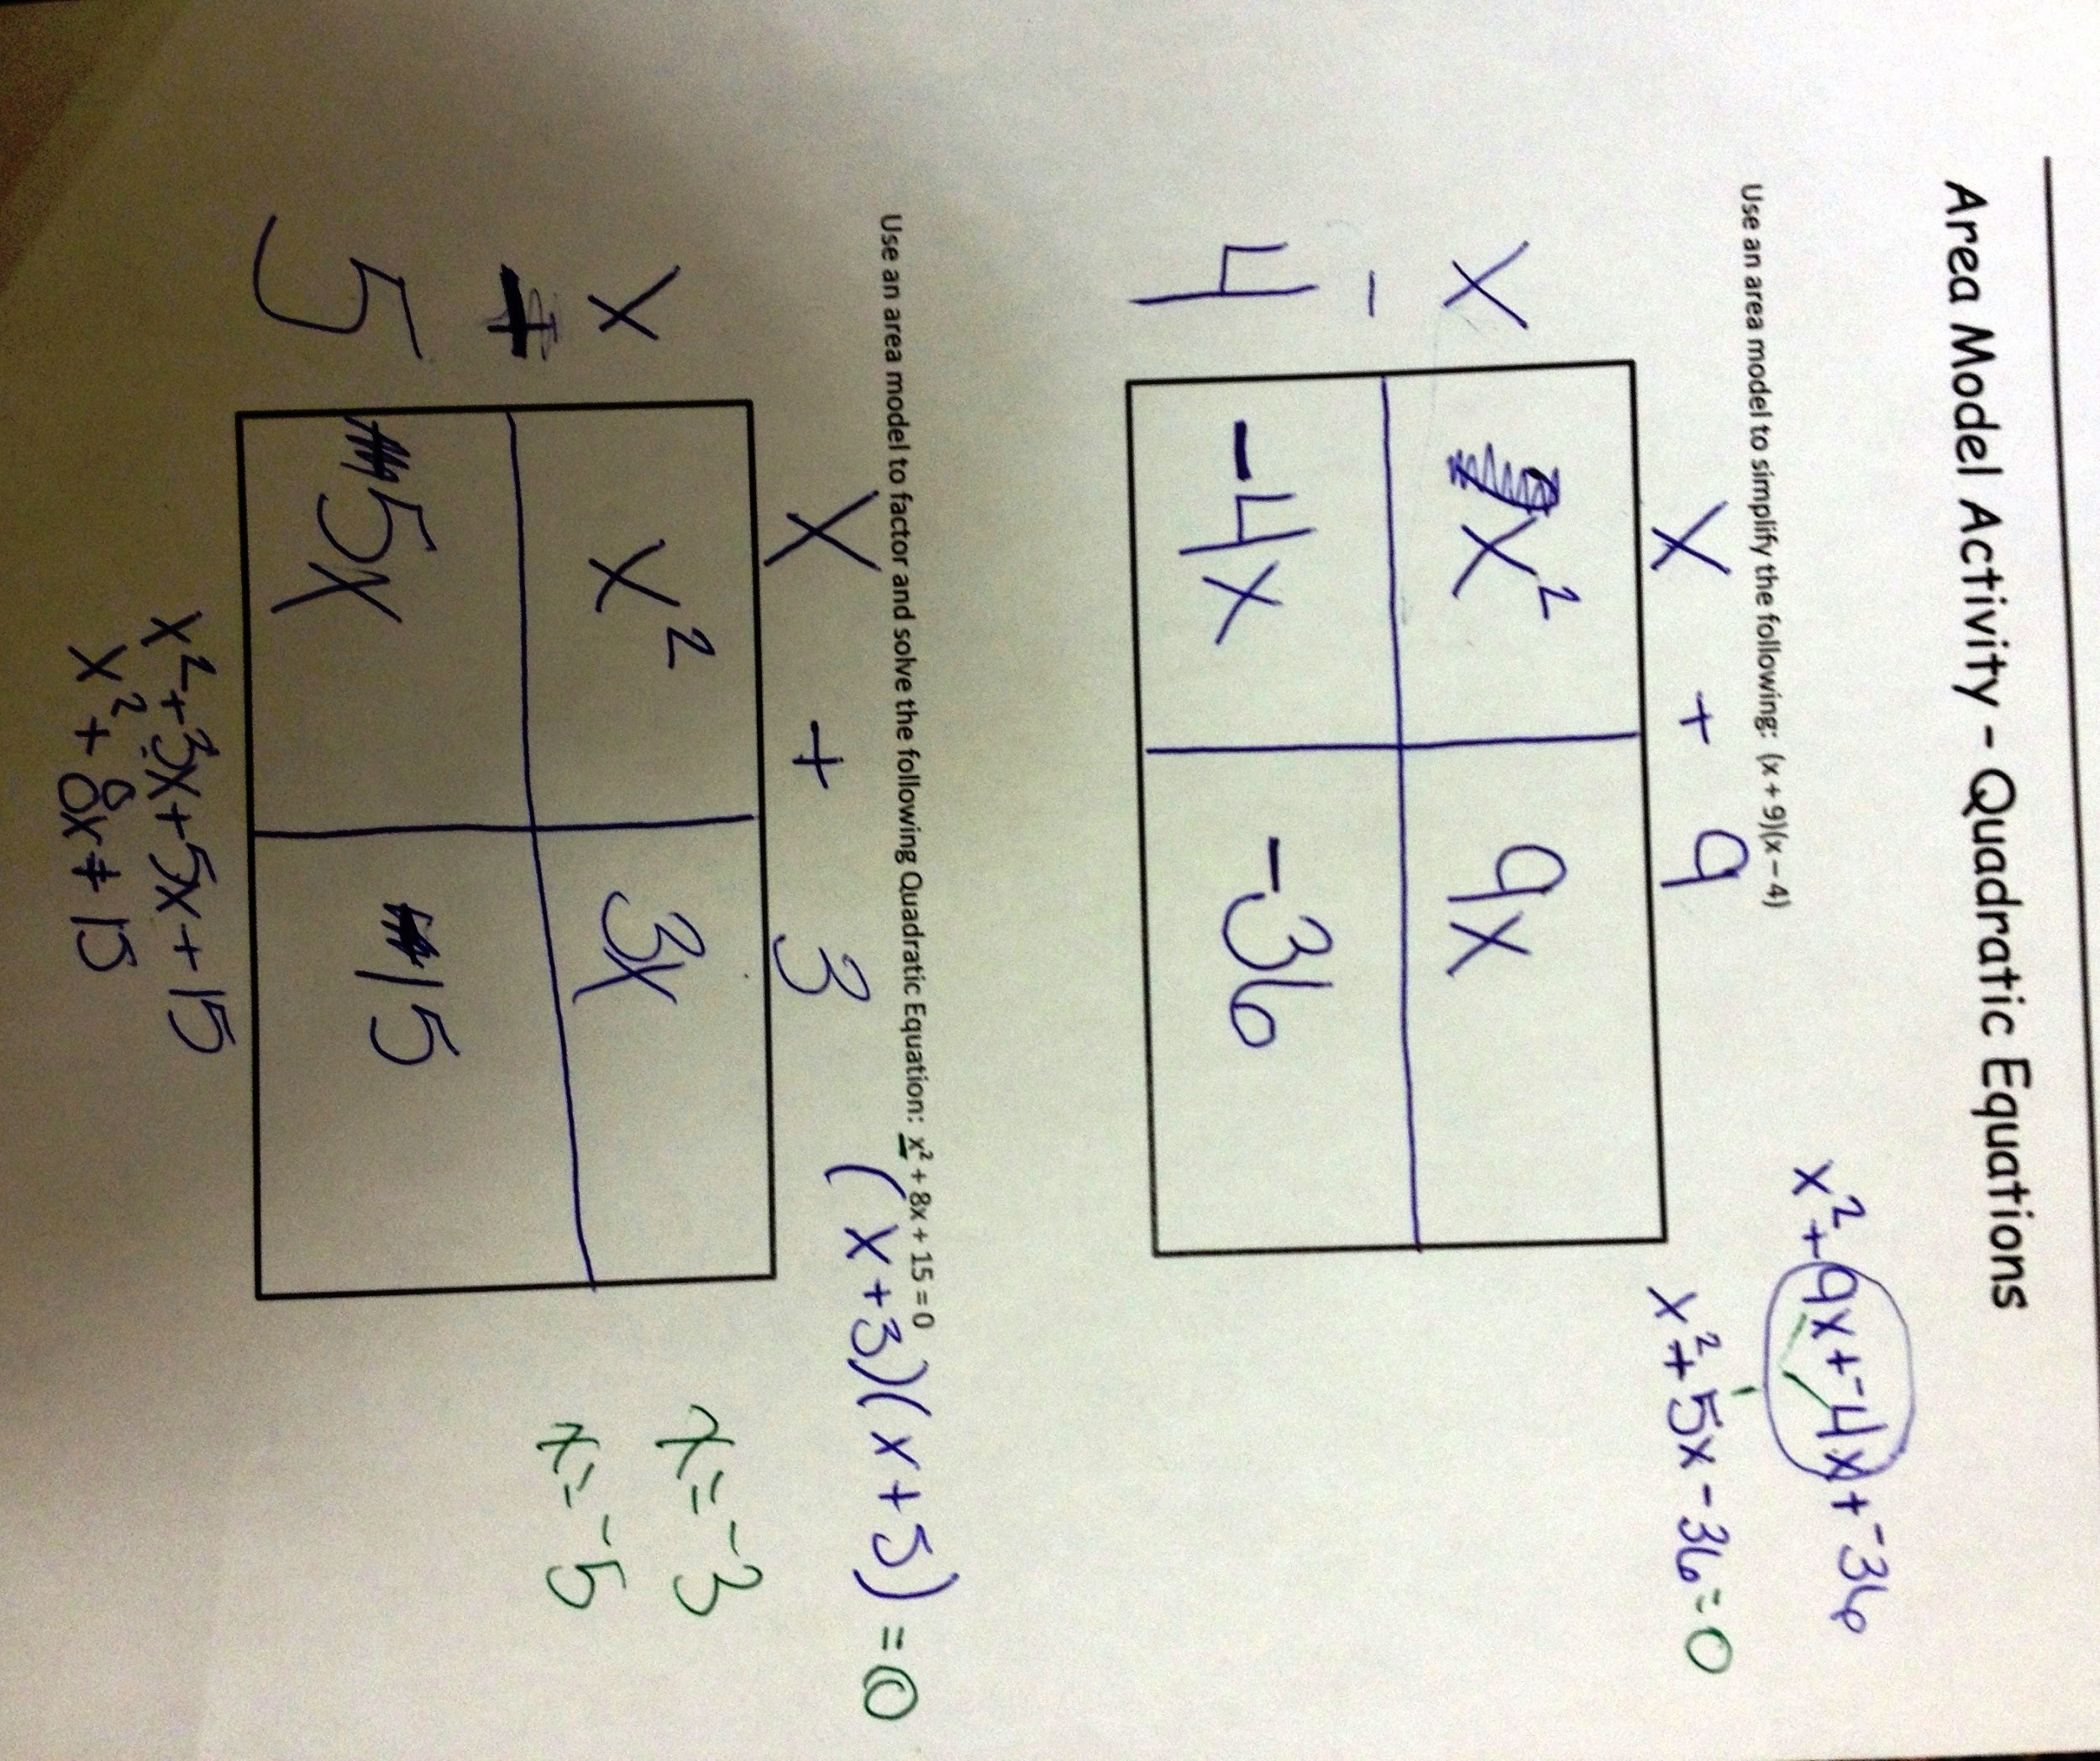 Area Model Activity – Quadratic Equations
Use an area model to simplify the following: (x + 9)(x – 4)
x² + 9x + ⁻4x + ⁻36
x² + 5x - 36 = 0
x + 9
x
-
4
x²
9x
-4x
-36
Use an area model to factor and solve the following Quadratic Equation: x² + 8x + 15 = 0
(x+3)(x+5) = 0
x + 3
x
+
5
x²
3x
5x
15
x = ⁻3
x = ⁻5
x² + 3x + 5x + 15
x² + 8x + 15